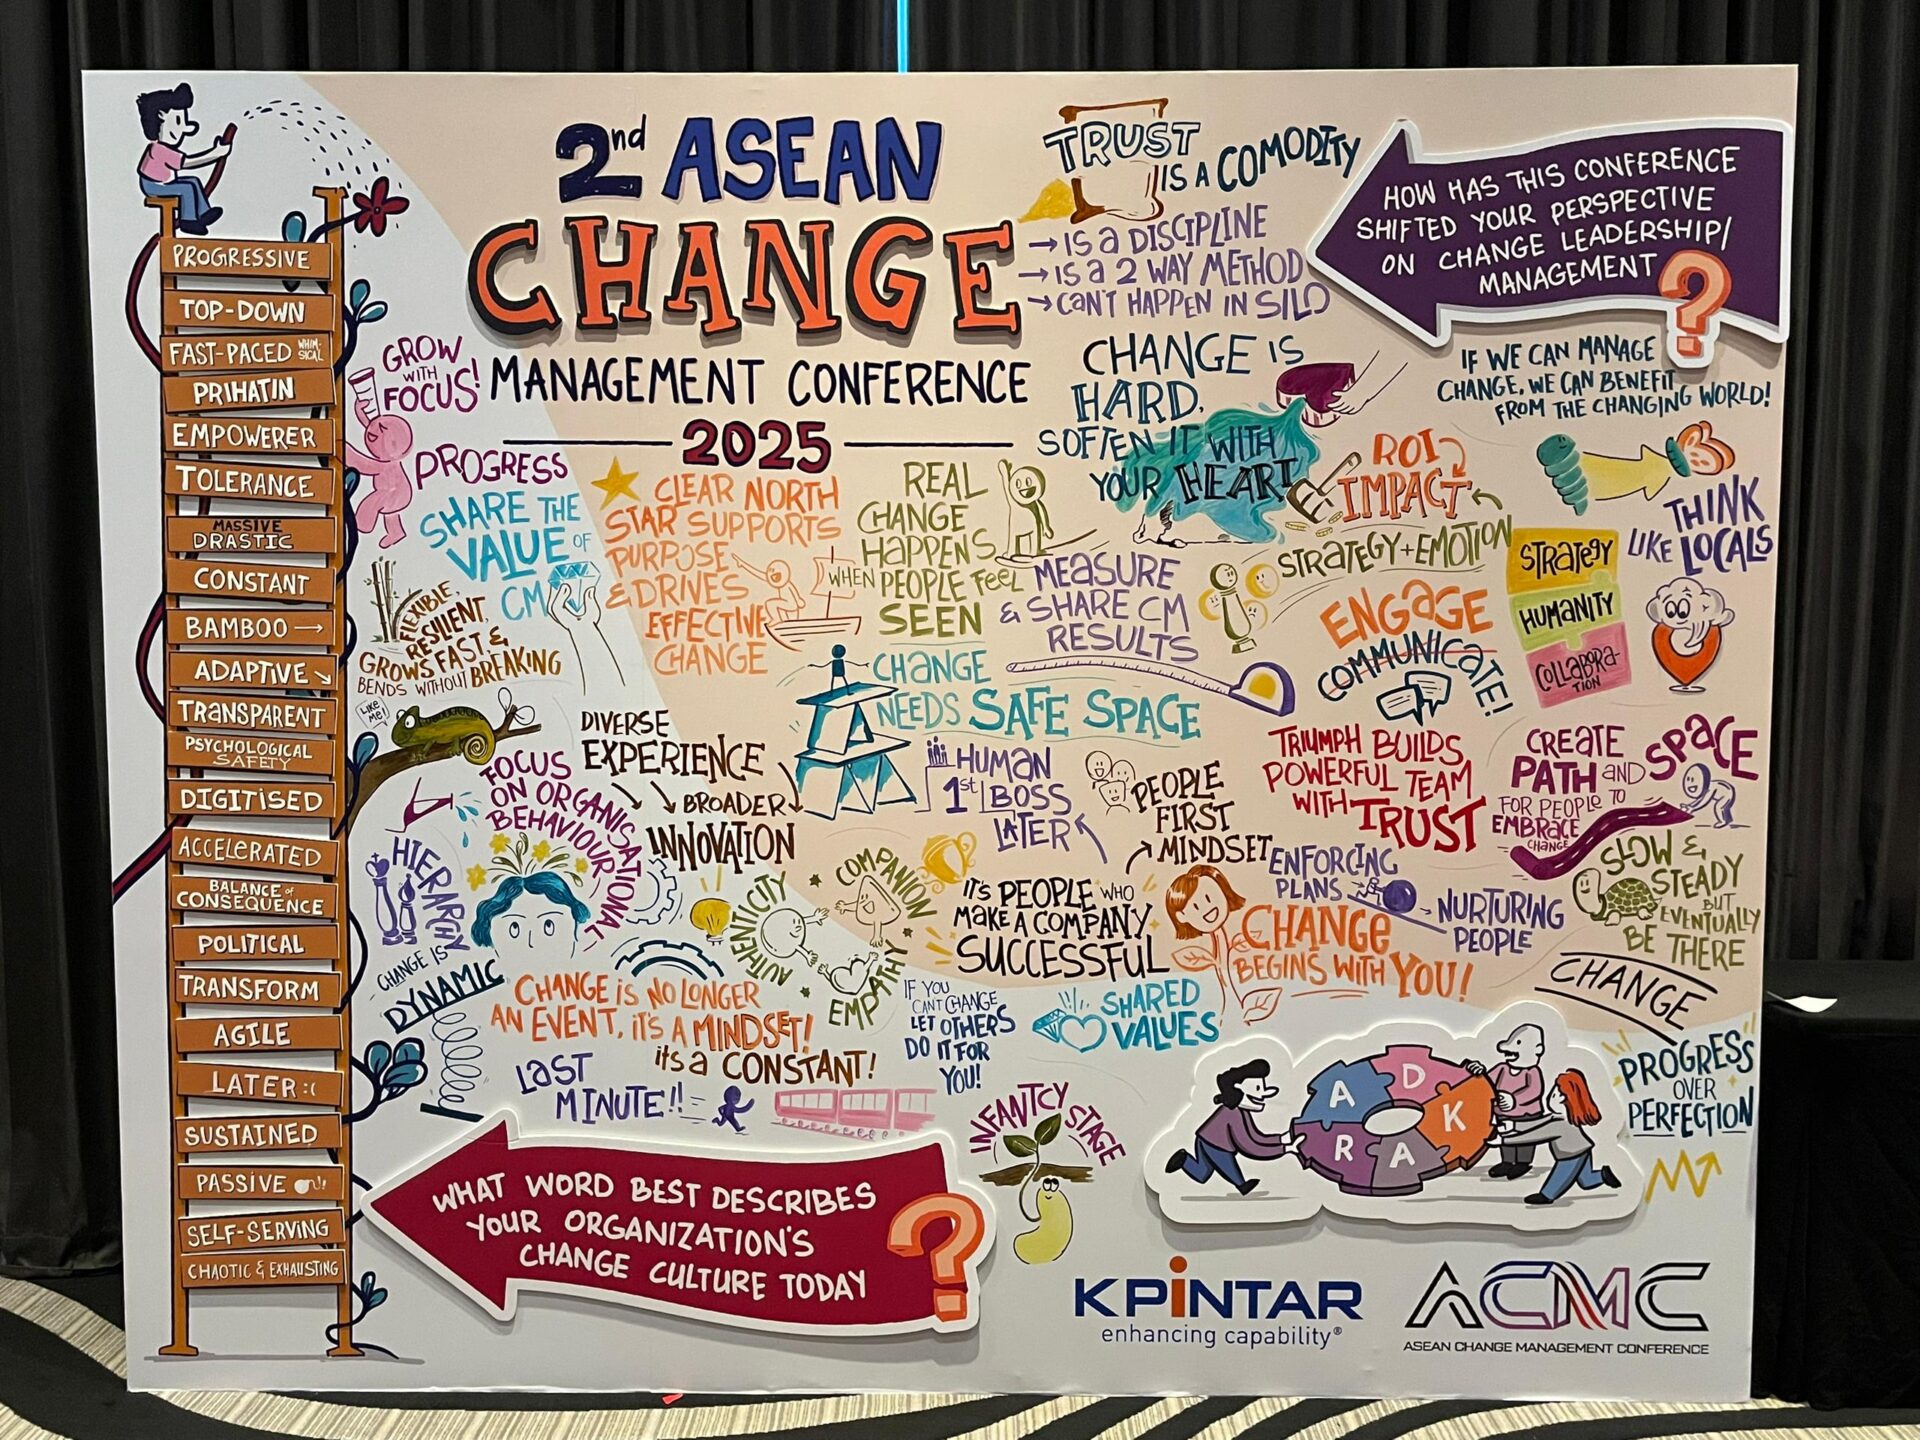 2nd ASEAN
CHANGE
MANAGEMENT CONFERENCE
2025
PROGRESSIVE
TOP-DOWN
FAST-PACED WHIM-
SICAL
PRIHATIN
EMPOWERER
TOLERANCE
MASSIVE
DRASTIC
CONSTANT
BAMBOO →
ADAPTIVE
TRANSPARENT
PSYCHOLOGICAL
SAFETY
DIGITISED
ACCELERATED
BALANCE of
CONSEQUENCE
POLITICAL
TRANSFORM
AGILE
LATER :(
SUSTAINED
PASSIVE
SELF-SERVING
CHAOTIC & EXHAUSTING
TRUST
IS A COMODITY
→ IS a DISCIPLINE
→ IS a 2 WAY METHOD
→ CAN'T HAPPEN IN SILO
HOW HAS THIS CONFERENCE
SHIFTED YOUR PERSPECTIVE
ON CHANGE LEADERSHIP/
MANAGEMENT ?
GROW
WITH
FOCUS!
PROGRESS
SHARE THE
VALUE OF
CM
FLEXIBLE,
RESILIENT,
GROWS FAST &
BENDS WITHOUT BREAKING
LIKE
ME!
CLEAR NORTH
STAR SUPPORTS
PURPOSE
& DRIVES
EFFECTIVE
CHANGE
REAL
CHANGE
HAPPENS
WHEN PEOPLE FEEL
SEEN
CHANGE IS
HARD,
SOFTEN IT WITH
YOUR HEART
ROI
IMPACT
STRATEGY + EMOTION
IF WE CAN MANAGE
CHANGE, WE CAN BENEFIT
FROM THE CHANGING WORLD!
THINK
LIKE LOCALS
STRATEGY
HUMANITY
COLLABORA-
TION
MEASURE
& SHARE CM
RESULTS
ENGAGE
COMMUNICATE!
CHANGE
NEEDS SAFE SPACE
DIVERSE
EXPERIENCE
BROADER
INNOVATION
FOCUS
ON ORGANISATIONAL
BEHAVIOUR
HIERARCHY
CHANGE IS
DYNAMIC
HUMAN
1st BOSS
LATER
PEOPLE
FIRST
MINDSET
TRIUMPH BUILDS
POWERFUL TEAM
WITH TRUST
CREATE
PATH AND SPACE
FOR PEOPLE TO
EMBRACE
CHANGE
SLOW &
STEADY
BUT
EVENTUALLY
BE THERE
ENFORCING
PLANS
NURTURING
PEOPLE
AUTHENTICITY
COMPANION
EMPATHY
IT'S PEOPLE WHO
MAKE A COMPANY
SUCCESSFUL
CHANGE
BEGINS WITH YOU!
CHANGE IS NO LONGER
AN EVENT, IT'S A MINDSET!
its a CONSTANT!
LAST
MINUTE!!
IF YOU
CANT CHANGE
LET OTHERS
DO IT FOR
YOU!
SHARED
VALUES
INFANTCY STAGE
CHANGE
PROGRESS
OVER
PERFECTION
A D K A R
WHAT WORD BEST DESCRIBES
YOUR ORGANIZATION'S
CHANGE CULTURE TODAY ?
KPINTAR
enhancing capability®
ACMC
ASEAN CHANGE MANAGEMENT CONFERENCE